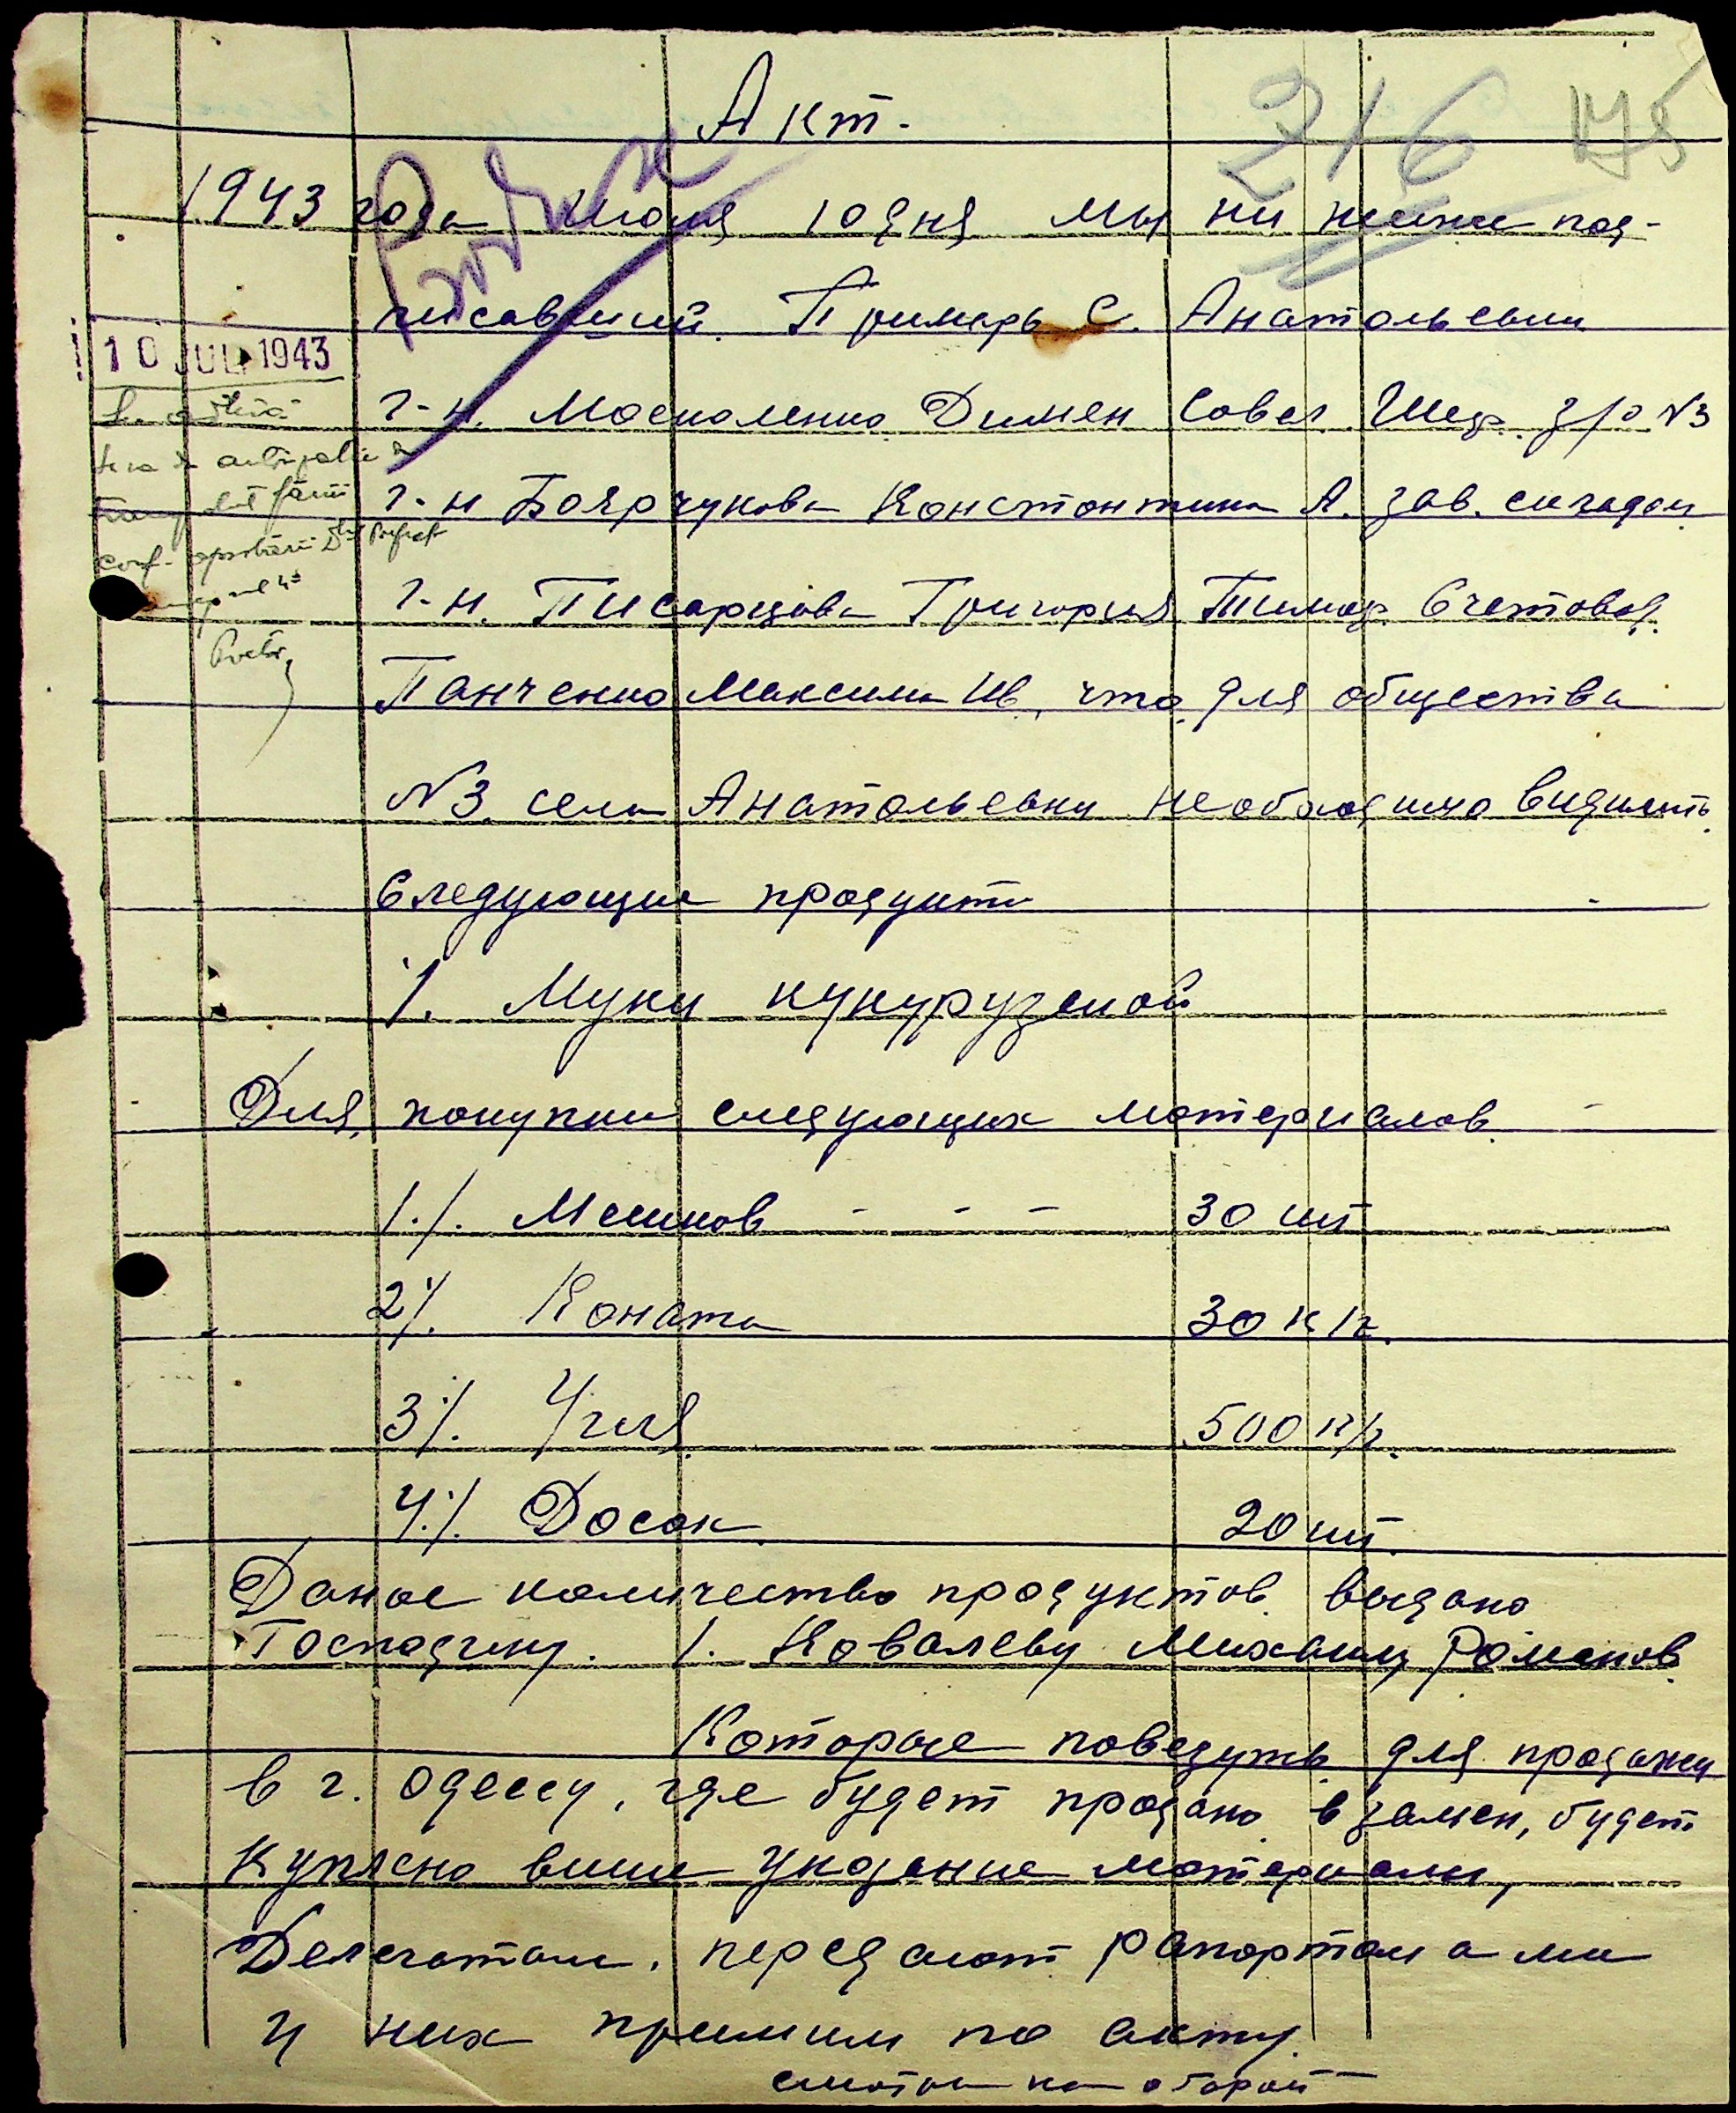 Акт.
216 175
1943 года июля 10 дня мы ни ниже под-
писавший. Примарь С. Анатольевки
10 JUL 1943
г-н. Москаленко Димен Савел. Шеф. з/о N3
г-н Боярчукова Константина А. зав. складом
г-н. Писарцова Григория Тимоф. Счетовод.
Панченко Максима Ив, что для общества
N3. села Анатольевки необходимо видилить
Следующие продукти
1. Муки кукурузеной
Для покупки следующих материалов.
1./. Мешков - - - 30 шт
2/. Коната 30 к/г.
3/. Угля 500 к/г.
4./. Досок 20 шт.
Даное количество продуктов видано
Господину. 1. Ковалеву Михаилу Роменов.
Которые повезуть для продажи
в г. Одессу, где будет продано в замен, будет
Куплено више указание материали,
Делегатам. передают рапортам а ми
у них примим по акту.
смотри на оборот